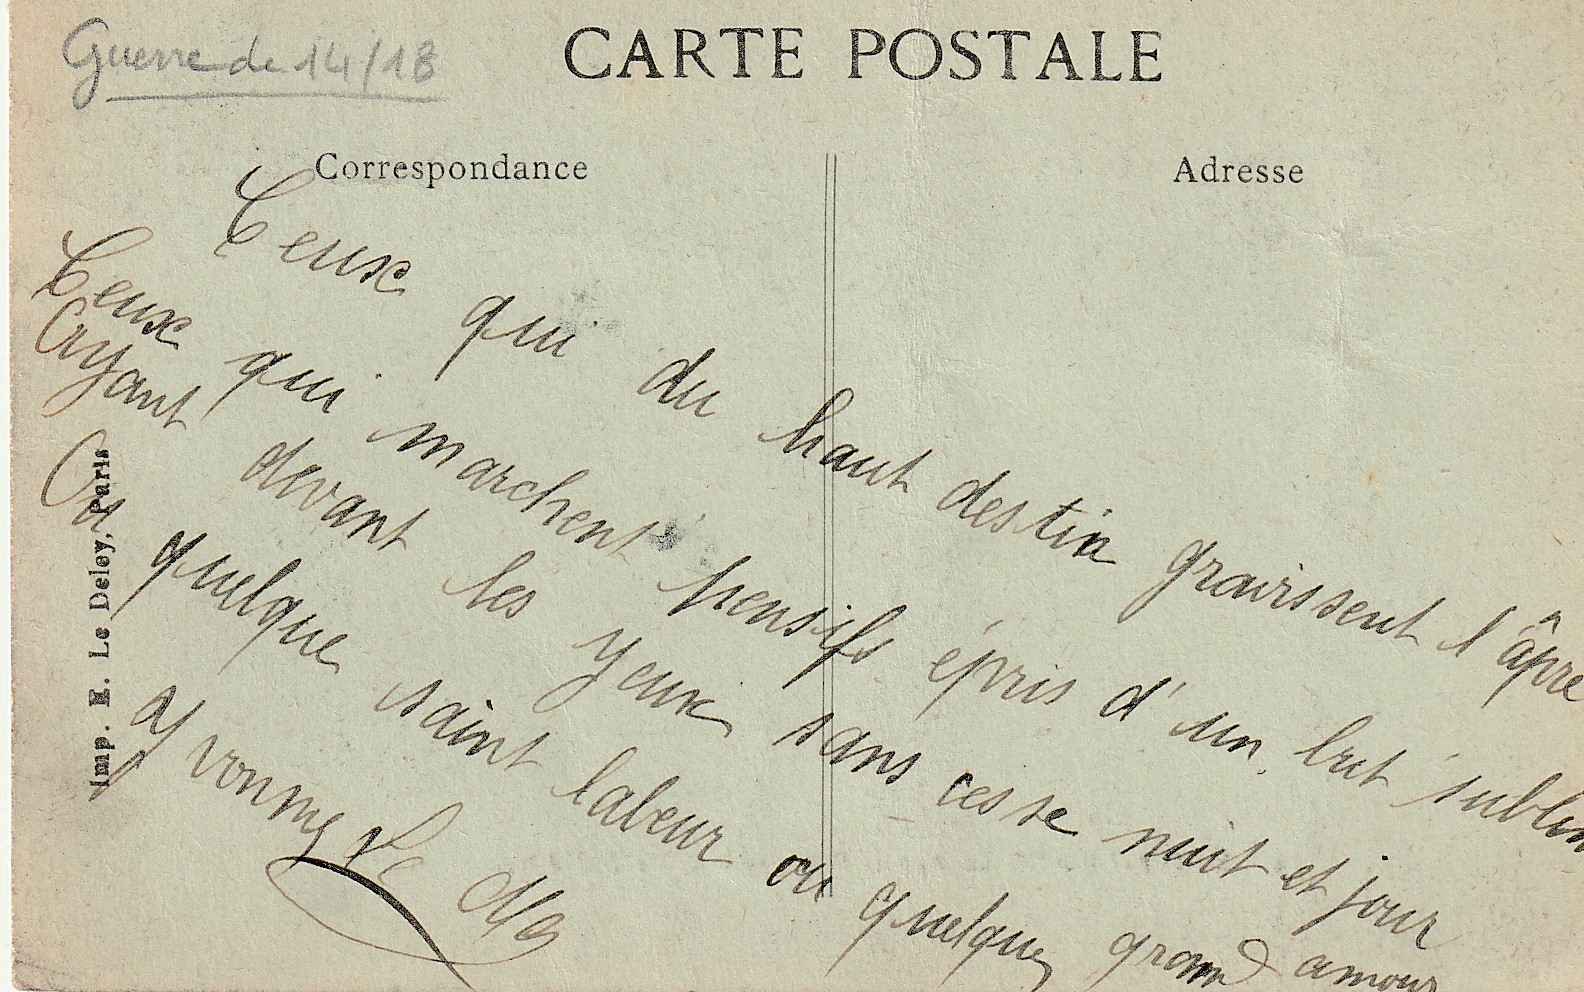 Guerre de 14/18
CARTE POSTALE
Correspondance
Adresse
Ceux qui du haut destin gravissent l'âpre
Ceux qui marchent pensifs épris d'un but sublim
Ayant devant les yeux sans cesse nuit et jour
Ou quelque saint labeur ou quelque grand amour
Yvonne Le
Imp. E. Le Deley, Paris